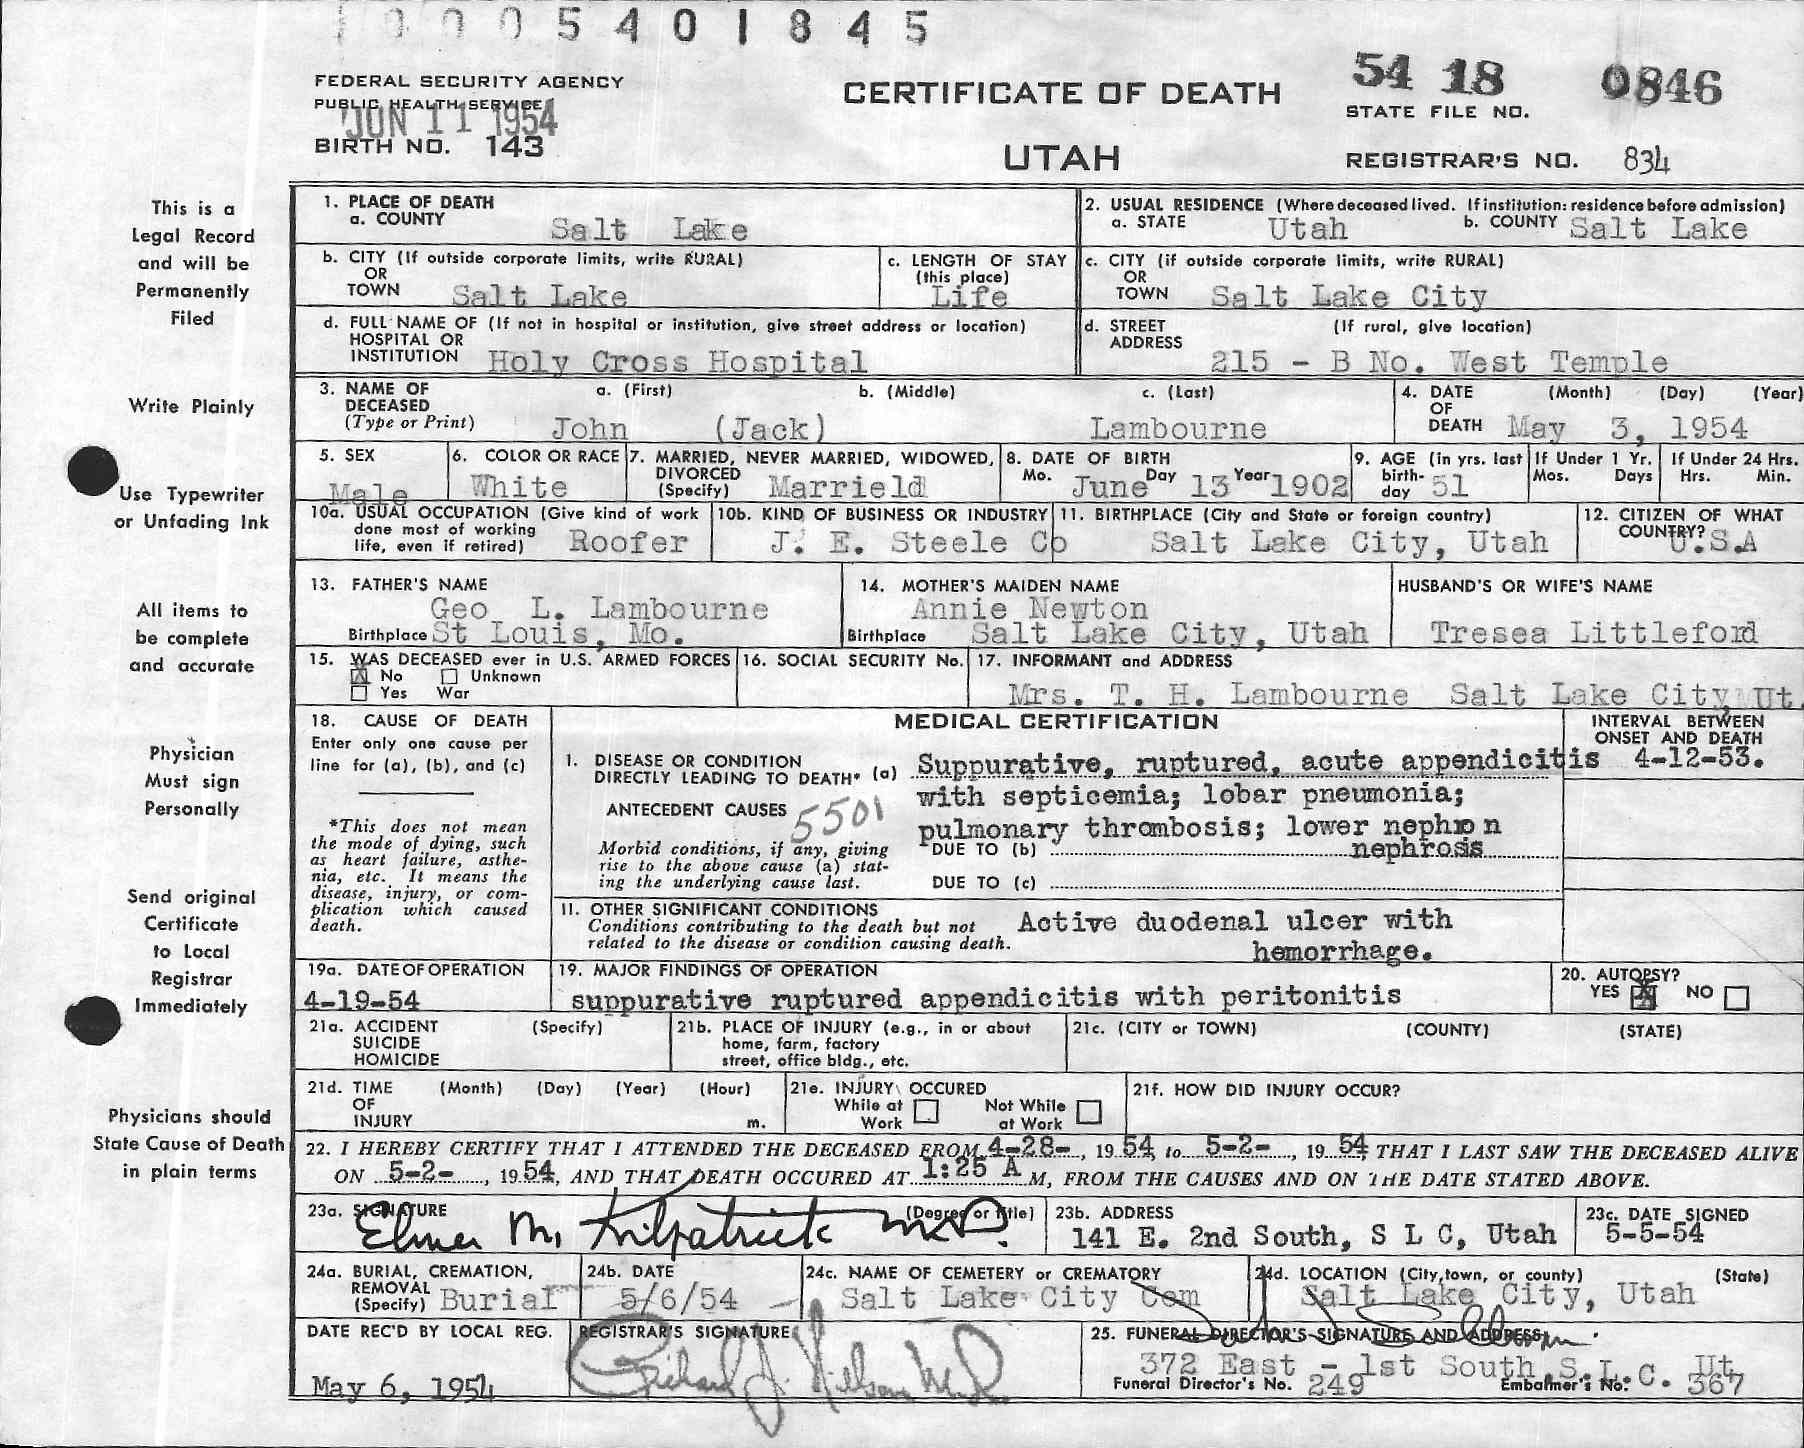 1 0 0 0 5 4 0 1 8 4 5
FEDERAL SECURITY AGENCY
PUBLIC HEALTH SERVICE
JUN 11 1954
BIRTH NO. 143
CERTIFICATE OF DEATH
UTAH
54 18 0846
STATE FILE NO.
REGISTRAR'S NO. 834
This is a
Legal Record
and will be
Permanently
Filed
Write Plainly
Use Typewriter
or Unfading Ink
All items to
be complete
and accurate
Physician
Must sign
Personally
Send original
Certificate
to Local
Registrar
Immediately
Physicians should
State Cause of Death
in plain terms
1. PLACE OF DEATH
a. COUNTY Salt Lake
2. USUAL RESIDENCE (Where deceased lived. If institution: residence before admission)
a. STATE Utah b. COUNTY Salt Lake
b. CITY (If outside corporate limits, write RURAL)
OR
TOWN Salt Lake
c. LENGTH OF STAY
(this place)
Life
c. CITY (if outside corporate limits, write RURAL)
OR
TOWN Salt Lake City
d. FULL NAME OF (If not in hospital or institution, give street address or location)
HOSPITAL OR
INSTITUTION Holy Cross Hospital
d. STREET (If rural, give location)
ADDRESS
215 - B No. West Temple
3. NAME OF a. (First) b. (Middle) c. (Last)
DECEASED
(Type or Print) John (Jack) Lambourne
4. DATE (Month) (Day) (Year)
OF
DEATH May 3, 1954
5. SEX
Male
6. COLOR OR RACE
White
7. MARRIED, NEVER MARRIED, WIDOWED,
DIVORCED
(Specify) Marrield
8. DATE OF BIRTH
Mo. June Day 13 Year 1902
9. AGE (in yrs. last
birth-
day 51
If Under 1 Yr.
Mos. Days
If Under 24 Hrs.
Hrs. Min.
10a. USUAL OCCUPATION (Give kind of work
done most of working
life, even if retired) Roofer
10b. KIND OF BUSINESS OR INDUSTRY
J. E. Steele Co
11. BIRTHPLACE (City and State or foreign country)
Salt Lake City, Utah
12. CITIZEN OF WHAT
COUNTRY?
U.S.A
13. FATHER'S NAME
Geo L. Lambourne
Birthplace St Louis, Mo.
14. MOTHER'S MAIDEN NAME
Annie Newton
Birthplace Salt Lake City, Utah
HUSBAND'S OR WIFE'S NAME
Tresea Littleford
15. WAS DECEASED ever in U.S. ARMED FORCES
X No Unknown
Yes War
16. SOCIAL SECURITY No.
17. INFORMANT and ADDRESS
Mrs. T. H. Lambourne Salt Lake City, Ut.
18. CAUSE OF DEATH
Enter only one cause per
line for (a), (b), and (c)
*This does not mean
the mode of dying, such
as heart failure, asthe-
nia, etc. It means the
disease, injury, or com-
plication which caused
death.
MEDICAL CERTIFICATION
INTERVAL BETWEEN
ONSET AND DEATH
1. DISEASE OR CONDITION
DIRECTLY LEADING TO DEATH* (a) Suppurative, ruptured, acute appendicitis 4-12-53.
ANTECEDENT CAUSES 5501 with septicemia; lobar pneumonia;
pulmonary thrombosis; lower nephron
Morbid conditions, if any, giving
rise to the above cause (a) stat-
ing the underlying cause last.
DUE TO (b) nephrosis
DUE TO (c)
11. OTHER SIGNIFICANT CONDITIONS
Conditions contributing to the death but not
related to the disease or condition causing death.
Active duodenal ulcer with
hemorrhage.
19a. DATE OF OPERATION
4-19-54
19. MAJOR FINDINGS OF OPERATION
suppurative ruptured appendicitis with peritonitis
20. AUTOPSY?
YES X NO
21a. ACCIDENT (Specify)
SUICIDE
HOMICIDE
21b. PLACE OF INJURY (e.g., in or about
home, farm, factory
street, office bldg., etc.
21c. (CITY or TOWN) (COUNTY) (STATE)
21d. TIME (Month) (Day) (Year) (Hour)
OF
INJURY m.
21e. INJURY OCCURED
While at Work Not While at Work
21f. HOW DID INJURY OCCUR?
22. I HEREBY CERTIFY THAT I ATTENDED THE DECEASED FROM 4-28-, 19 54, to 5-2-, 19 54, THAT I LAST SAW THE DECEASED ALIVE
ON 5-2-, 19 54, AND THAT DEATH OCCURED AT 1:25 A M, FROM THE CAUSES AND ON THE DATE STATED ABOVE.
23a. SIGNATURE (Degree or title)
Elmer M. Kilpatrick M.D.
23b. ADDRESS
141 E. 2nd South, S L C, Utah
23c. DATE SIGNED
5-5-54
24a. BURIAL, CREMATION,
REMOVAL
(Specify) Burial
24b. DATE
5/6/54
24c. NAME OF CEMETERY or CREMATORY
Salt Lake City Cem
24d. LOCATION (City, town, or county) (State)
Salt Lake City, Utah
DATE REC'D BY LOCAL REG.
May 6, 1954
REGISTRAR'S SIGNATURE
Richard J. Nelson M.D.
25. FUNERAL DIRECTOR'S SIGNATURE AND ADDRESS
372 East - 1st South S.L.C. Ut.
Funeral Director's No. 249 Embalmer's No. 367